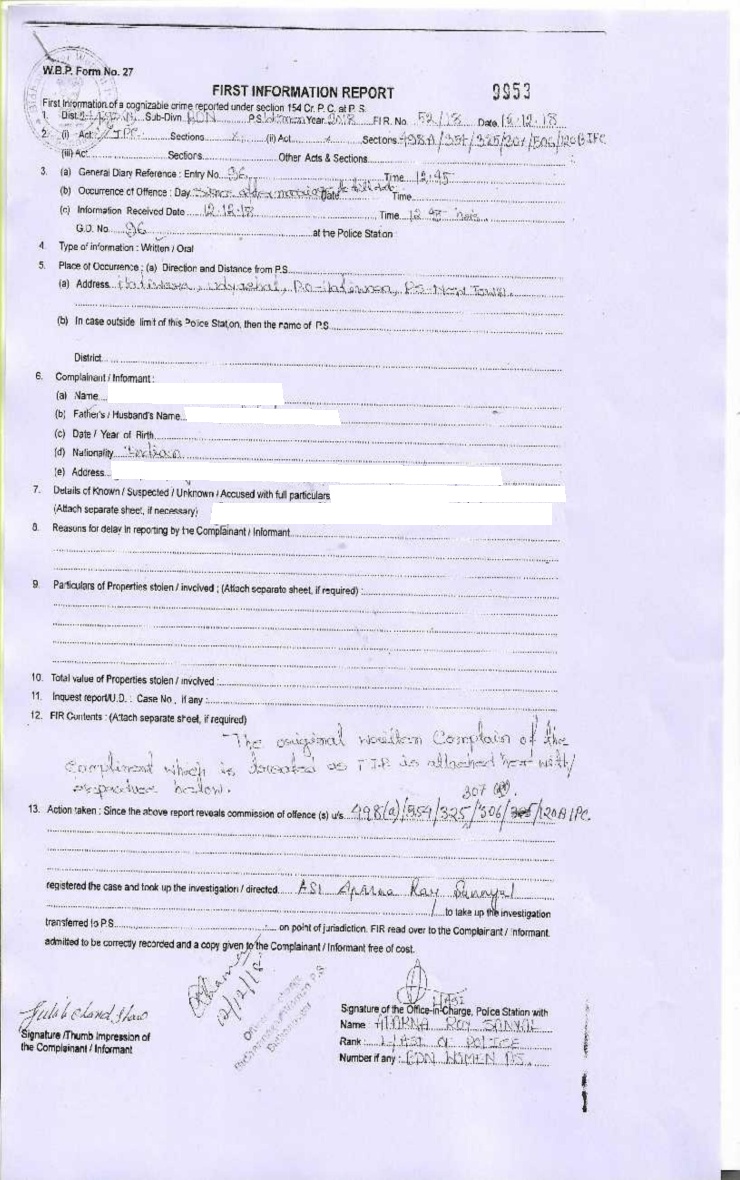 W.B.P. Form No. 27
FIRST INFORMATION REPORT
9953
First Information of a cognizable crime reported under section 154 Cr. P. C. at P. S.
1. Dist. Sub-Divn. BDN P.S. Women Year 2018 F.I.R. No. 52/18 Date 12.12.18
2. (i) Act IPC Sections x (ii) Act x Sections 498A/354/325/307/506/120B IPC
(iii) Act Sections Other Acts & Sections
3. (a) General Diary Reference : Entry No. 96 Time 12:45
(b) Occurrence of Offence : Day Since after marriage to till date Date Time
(c) Information Received Date 12.12.18 Time 12:45 hrs
G.D. No. 96 at the Police Station
4. Type of information : Written / Oral
5. Place of Occurrence ; (a) Direction and Distance from P.S.
(a) Address Hatiwara, Udyachal, Po-Hatiwara, PS-New Town.
(b) In case outside limit of this Police Station, then the name of P.S.
District
6. Complainant / Informant :
(a) Name
(b) Father's / Husband's Name
(c) Date / Year of Birth
(d) Nationality Indian
(e) Address
7. Details of Known / Suspected / Unknown / Accused with full particulars
(Attach separate sheet, if necessary)
8. Reasons for delay in reporting by the Complainant / Informant
9. Particulars of Properties stolen / involved ; (Attach separate sheet, if required) :
10. Total value of Properties stolen / involved :
11. Inquest report/U.D. : Case No, if any :
12. FIR Contents : (Attach separate sheet, if required)
The original written Complain of the
Complinent which is treated as FIR is attached here with/
reproduce below.
307
13. Action taken : Since the above report reveals commission of offence (s) u/s. 498(a)/354/325/506/120B IPC.
registered the case and took up the investigation / directed ASI Aparna Roy Sannyal
to take up the investigation
transferred to P.S. on point of jurisdiction. FIR read over to the Complainant / Informant.
admitted to be correctly recorded and a copy given to the Complainant / Informant free of cost.
12/12/18
Officer-in-Charge
Women P.S
Signature /Thumb Impression of
the Complainant / Informant
Signature of the Office-in-Charge, Police Station with
Name : APARNA ROY SANYAL
Rank : L/ASI OF POLICE
Number if any : BDN WOMEN PS.